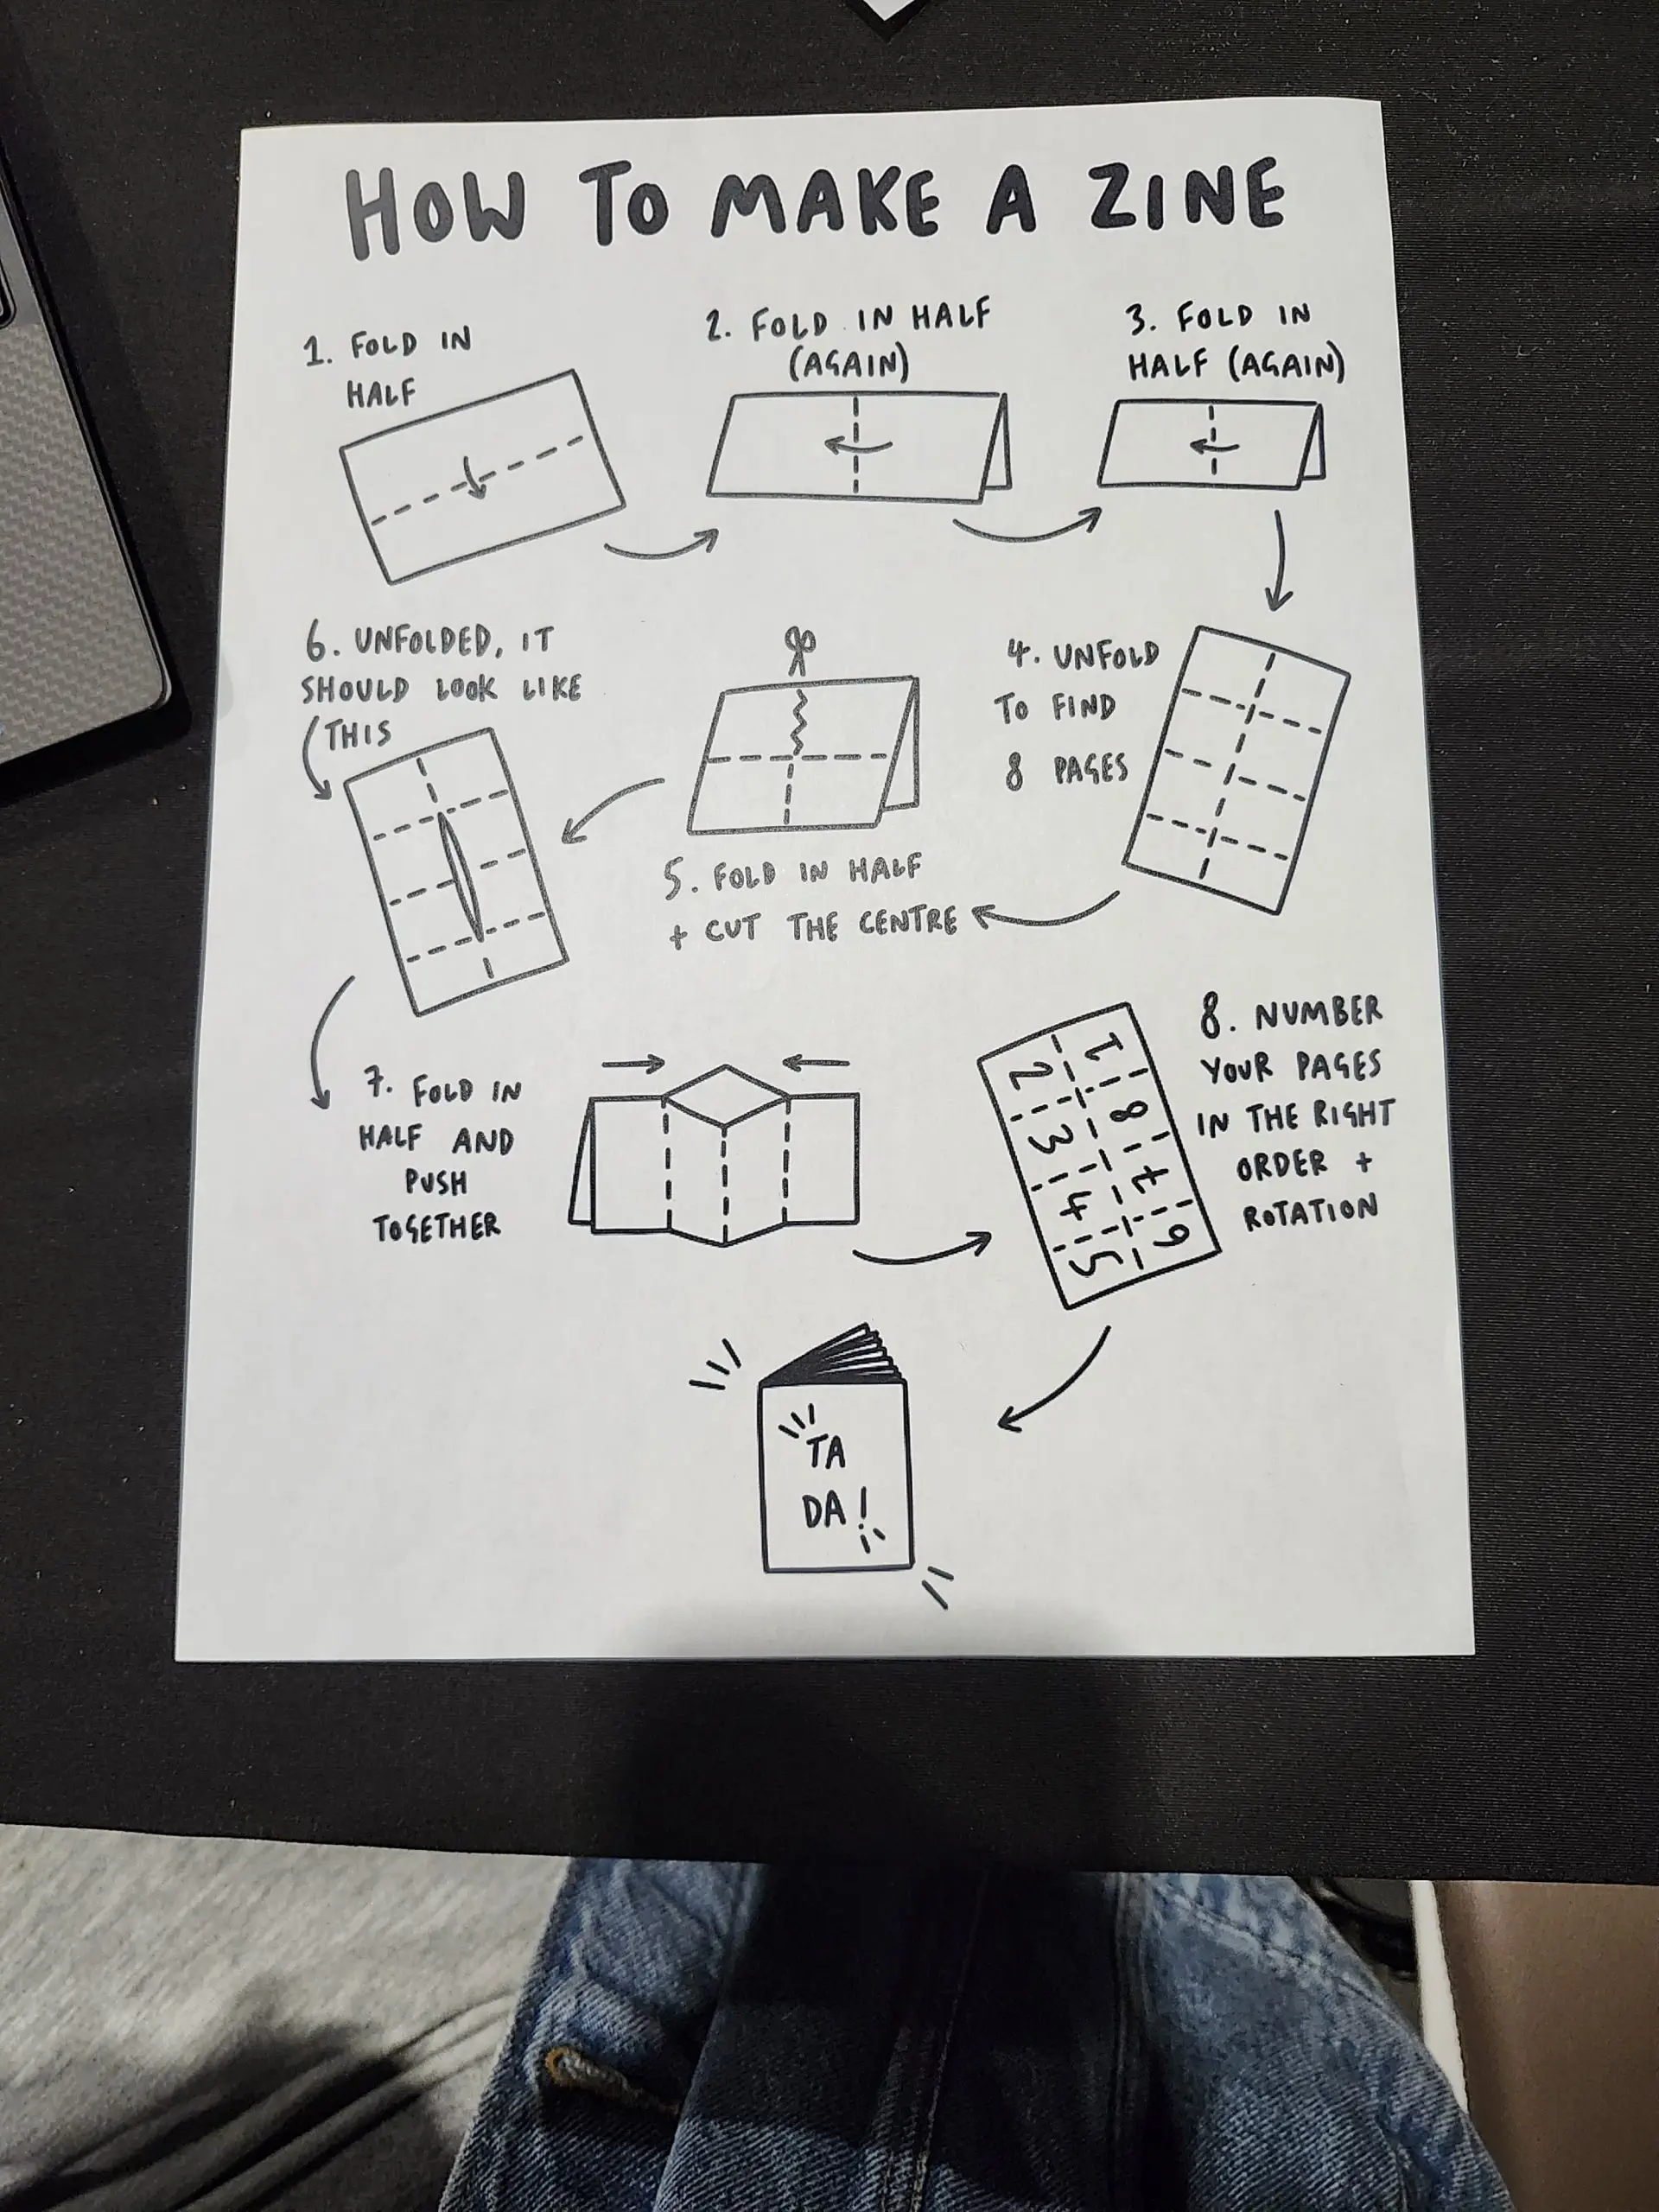 HOW TO MAKE A ZINE
1. FOLD IN
HALF
2. FOLD IN HALF
(AGAIN)
3. FOLD IN
HALF (AGAIN)
4. UNFOLD
TO FIND
8 PAGES
5. FOLD IN HALF
+ CUT THE CENTRE
6. UNFOLDED, IT
SHOULD LOOK LIKE
THIS
7. FOLD IN
HALF AND
PUSH
TOGETHER
8. NUMBER
YOUR PAGES
IN THE RIGHT
ORDER +
ROTATION
1
8
7
6
2
3
4
5
TA
DA!